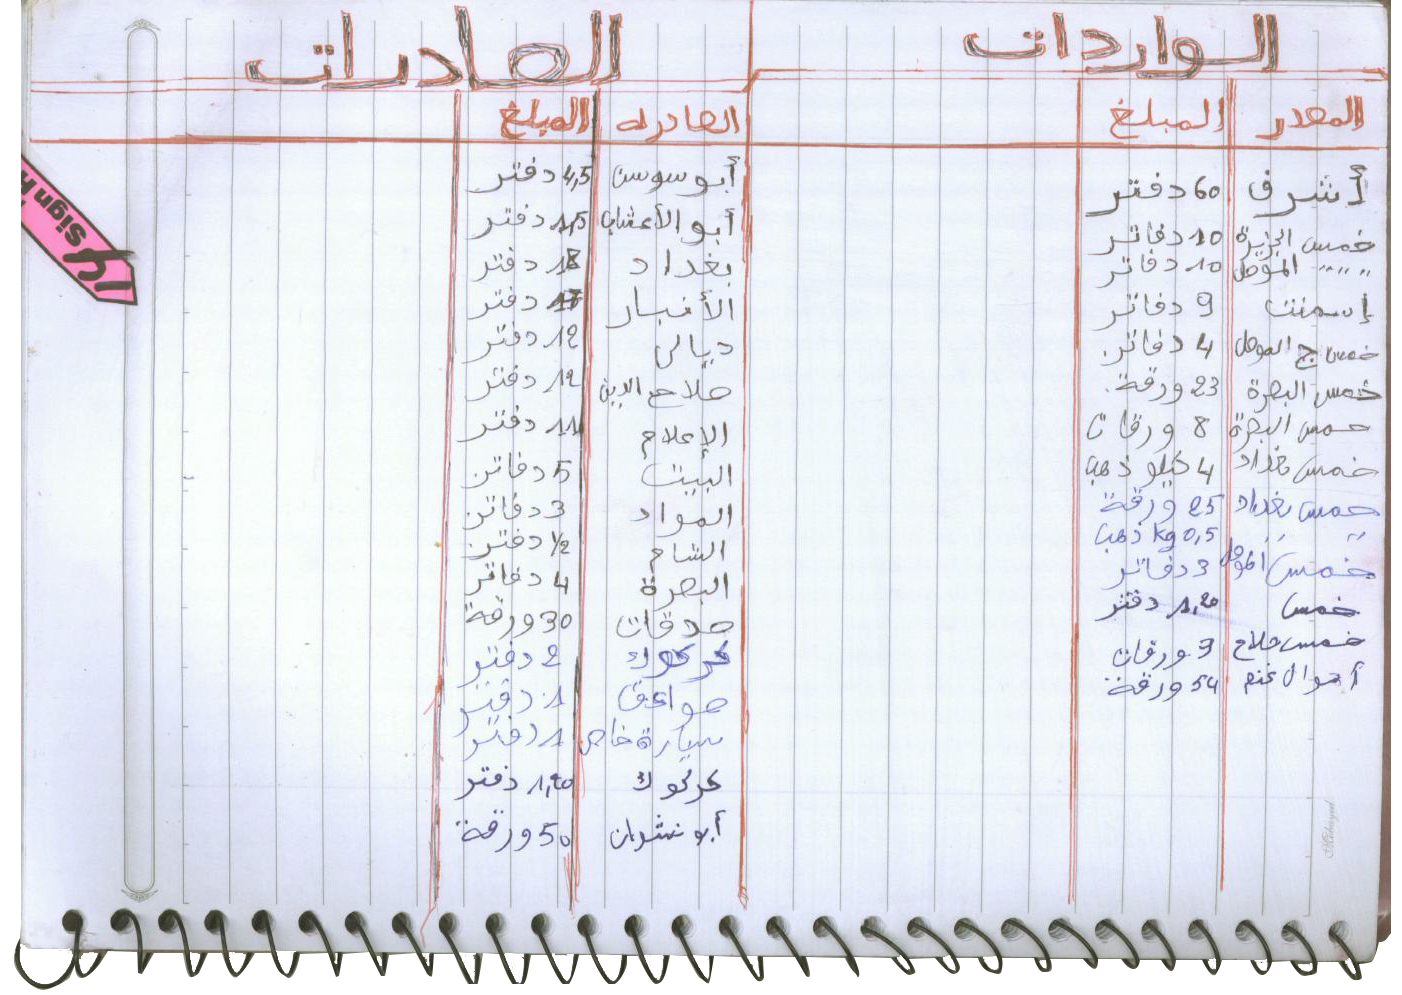 الواردات
المصدر المبلغ
أشرف 60 دفتر
خمس الجزيرة 10 دفاتر
" " " الموصل 10 دفاتر
إسمنت 9 دفاتر
خمس ج الموصل 4 دفاتر
خمس البصرة 23 ورقة
خمس البصرة 8 ورقات
خمس بغداد 4 كيلو ذهب
خمس بغداد 25 ورقة
" " 0,5 kg ذهب
خمس الموصل 3 دفاتر
خمس 1,20 دفتر
خمس صلاح 3 ورقات
أموال غنم 54 ورقة
الصادرات
الصادرله المبلغ
أبو سوسن 4,5 دفتر
أبو 1,5 دفتر
بغداد 18 دفتر
الأنبار 17 دفتر
ديالى 12 دفتر
صلاح الدين 12 دفتر
الإعلام 11 دفتر
البيت 5 دفاتر
المواد 3 دفاتر
الشام 1/2 دفتر
البصرة 4 دفاتر
صدقات 30 ورقة
كركوك 2 دفتر
1 دفتر
سيارة خاص 1 دفتر
كركوك 1,20 دفتر
أبو نشوان 50 ورقة
sign h